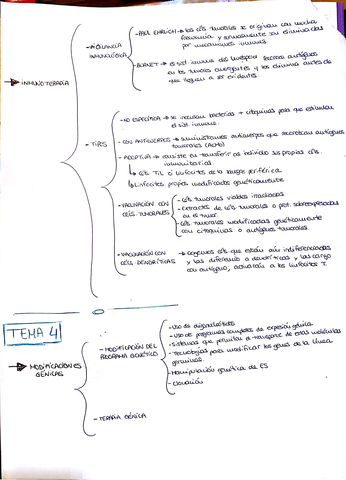 → INMUNOTERAPIA
- VIGILANCIA
INMUNOLÓGICA
- PAUL EHRLICH → las céls tumorales se originan con mucha
frecuencia y normalmente son eliminadas
por mecanismos inmunes.
- BURNET → el sist inmune del huésped reconoce antígenos
en los tumores emergentes y los elimina antes de
que lleguen a ser evidentes
- TIPOS
- NO ESPECÍFICA → se inoculan bacterias + citoquinas para que estimulen
el sist. inmune.
- CON ANTICUERPOS → suministramos anticuerpos que reconozcan antígenos
tumorales (ACMo)
- ADOPTIVA → consiste en transferir al individuo sus propias céls.
inmunitarias.
↳ Céls TIL o linfocitos de la sangre periférica.
↳ Linfocitos propios modificados genéticamente
- VACUNACIÓN CON
CÉLS. TUMORALES
- Céls tumorales viables irradiadas
- extractos de céls tumorales o prot. sobreexpresadas
en el tumor.
- Céls tumorales modificadas genéticamente
con citoquinas o antígenos tumorales.
- VACUNACIÓN CON
CÉLS DENDRÍTICAS
→ cogemos céls que están aún indiferenciadas
y las diferencio a dendríticas y las cargo
con antígeno, activarán a los linfocitos T.
TEMA 4
→ MODIFICACIONES
GÉNICAS
- MODIFICACIÓN DEL
PROGRAMA GENÉTICO
- Uso de oligonucleótidos
- Uso de programas completos de expresión génica
- Sistemas que permiten el transporte de estas moléculas
- Tecnologías para modificar los genes de la línea
germinal.
- Manipulación genética de ES
- Clonación
- TERAPIA GÉNICA